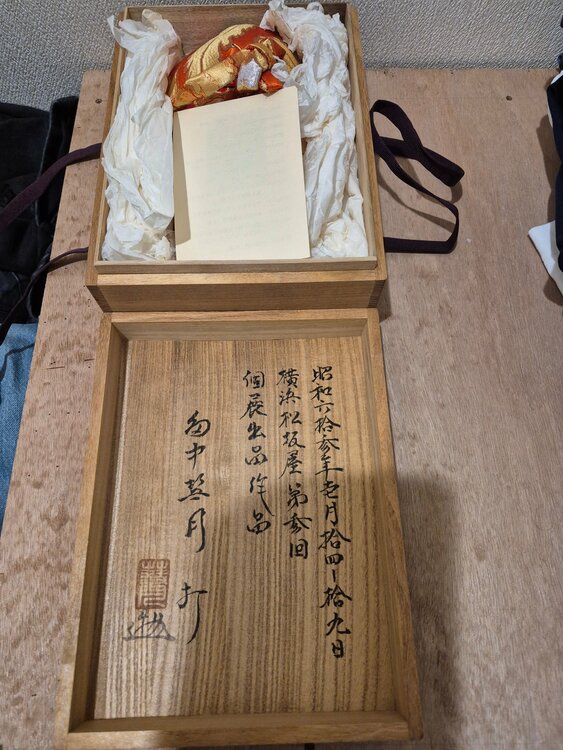 昭和六拾参年壱月拾四ー拾九日
横浜松坂屋第参回
個展出品作品
中 月 打